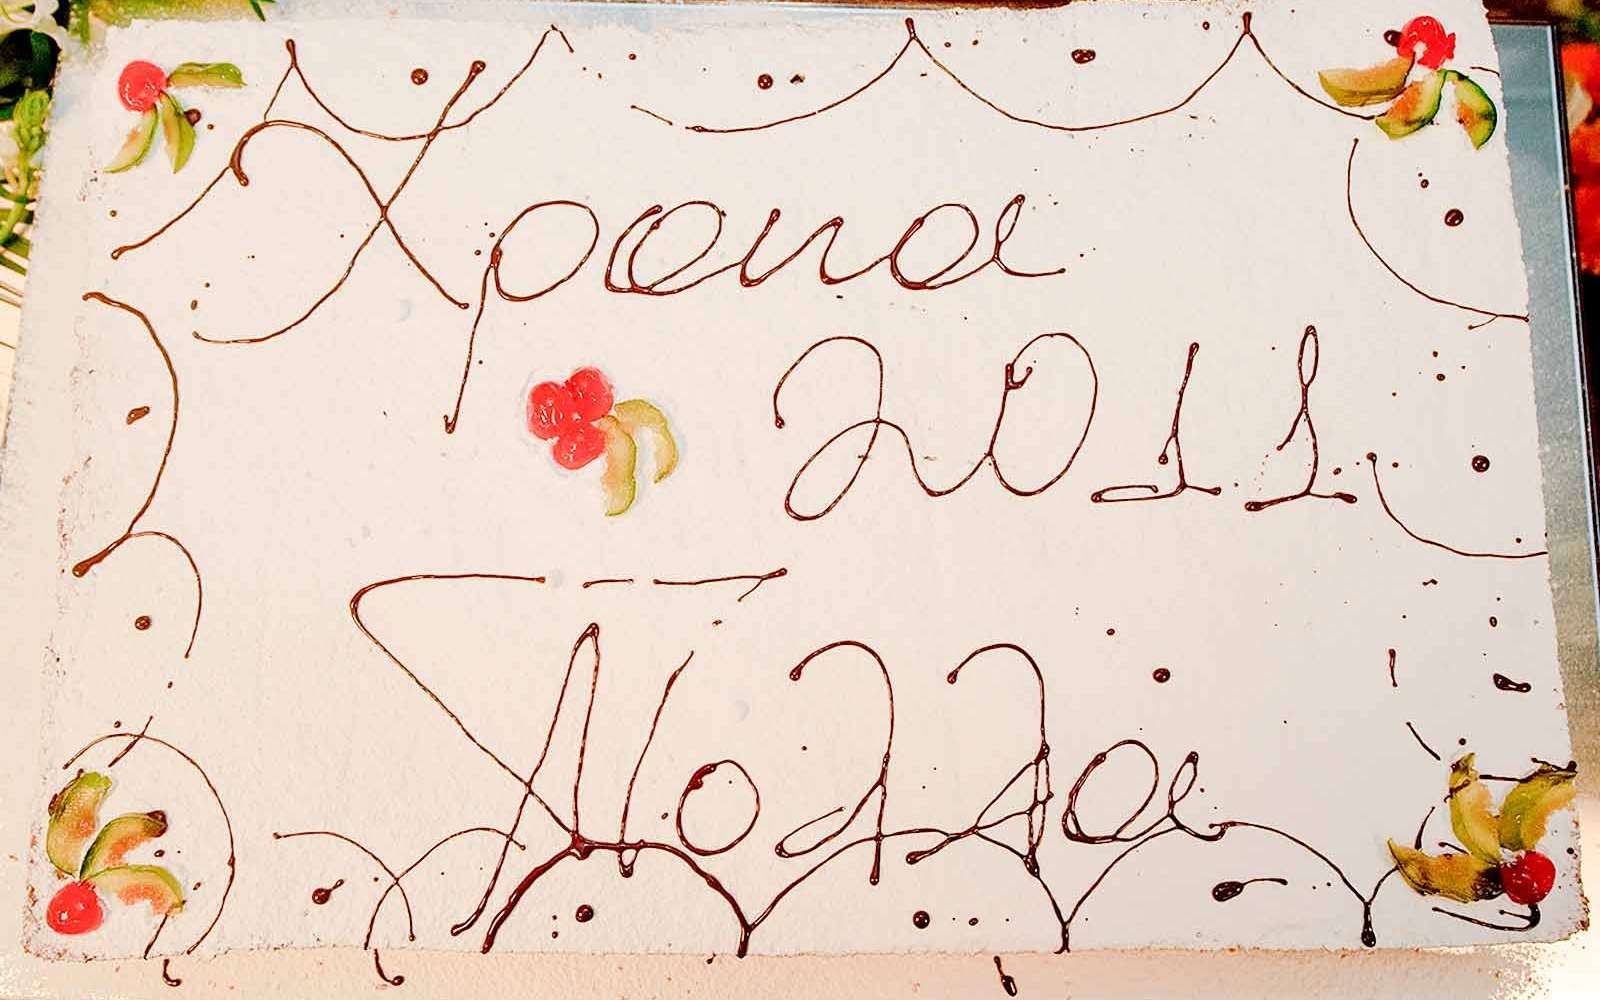 Χρονια
2011
Πολλα